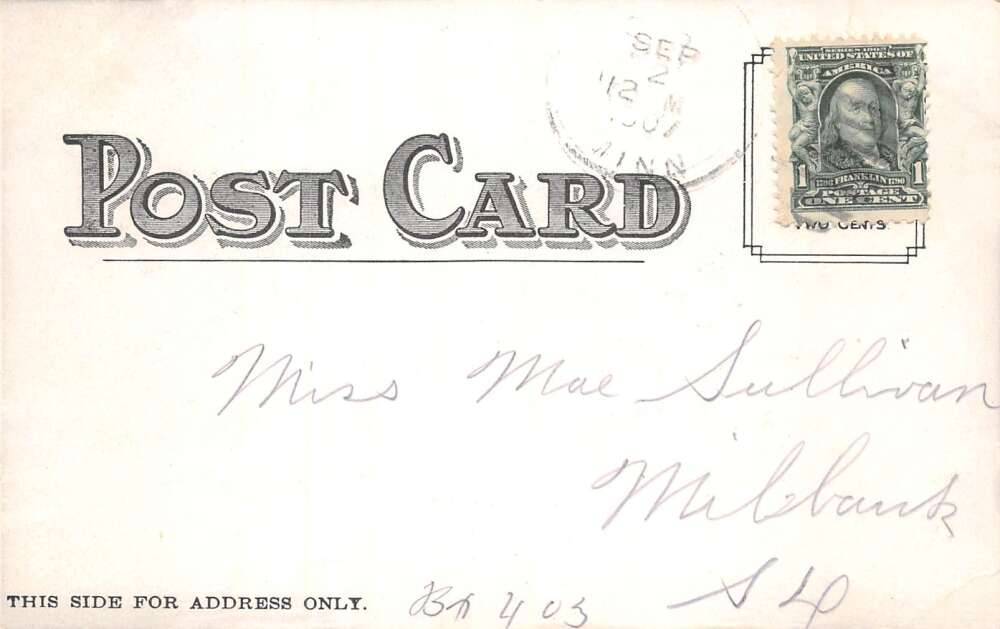 SEP
2
12 M
1907
MINN
SERIES 1902
UNITED STATES OF
AMERICA
1 FRANKLIN 1
POSTAGE
ONE CENT
TWO CENTS.
POST CARD
Miss Mae Sullivan
Millbank
S D
THIS SIDE FOR ADDRESS ONLY.
403